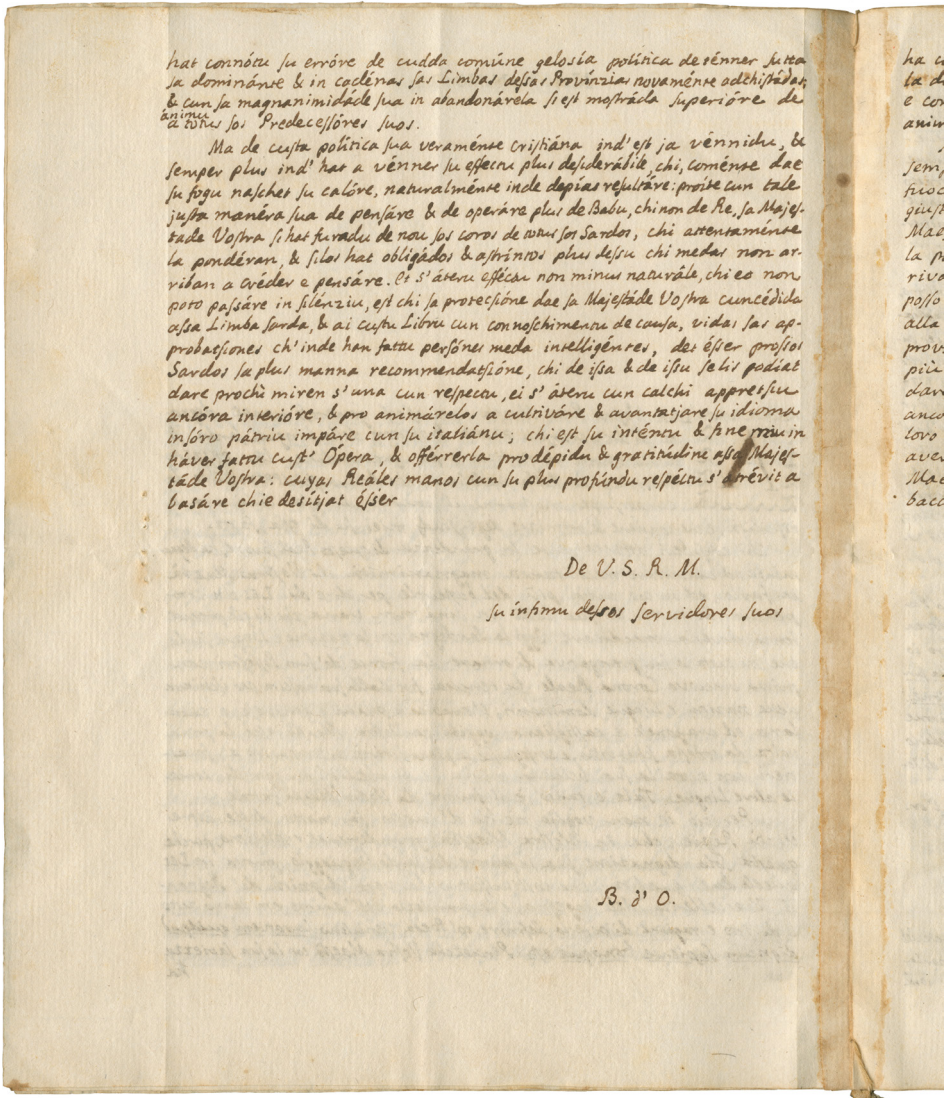 hat connótu su erróre de cudda comúne gelosía política de ténner sutta
sa dominánte & in cadénas sas Limbas dessas Provínzias novaménte adchistádas,
& cun sa magnanimidáde sua in abandonárela si est mostráda superióre de
ánimu
a totus sos Predecessóres suos.
Ma de custa política sua veraménte cristiána ind' est ja vénnidu, &
semper plus ind' hat a vénner su effectu plus desiderábile, chi, coménte dae
su fogu naschet su calóre, naturalménte inde depías resultáre: proite cun tale
justa manéra sua de pensáre & de operáre plus de Babu, chi non de Re, sa Majes-
táde Vostra si hat furadu de nou sos coros de totus sos Sardos, chi attentaménte
la pondéran, & silos hat obligádos & astrintos plus dessu chi medas non ar-
riban a créder e pensáre. Et s' áteru efféctu non minus naturále, chi eo non
poto passáre in silénziu, est chi sa protectióne dae sa Majestáde Vostra cuncédida
assa Limba sarda, & ai custu Libru cun connoschimentu de causa, vidas sas ap-
probatsiones ch' inde han fattu persónes meda intelligéntes, det ésser prossos
Sardos sa plus manna recommendatsióne, chi de issa & de issu selis podiat
dare prochì miren s' una cun respectu, ei s' áteru cun calchi appretsiu
ancóra interióre, & pro animárelos a cultiváre & avantatjare su idioma
insóro pátriu impáre cun su italiánu; chi est su inténtu & fine miu in
háver fattu cust' Ópera, & offérrerla pro dépidu & gratitudine assa Majes-
táde Vostra: cuyas Reáles manos cun su plus profúndu respéctu s' atrévit a
basáre chie desítjat ésser
De V. S. R. M.
su ínfimu dessos servidores suos
B. d' O.
ha c
la d
e con
anim
semp
fuoc
gius
Mae
la p
riva
posso
alla
prov
più
dar
anco
loro
aver
Mae
bac